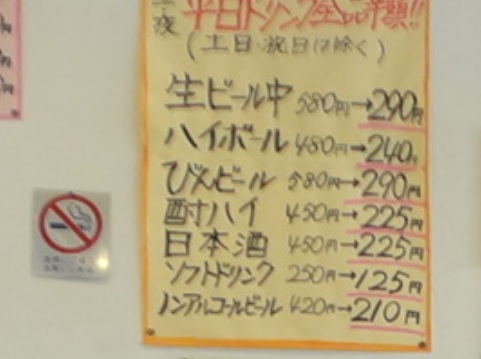 平日ドリンク全品半額!!
(土日、祝日は除く)
生ビール中 580円→290円
ハイボール 480円→240円
びんビール 580円→290円
酎ハイ 450円→225円
日本酒 450円→225円
ソフトドリンク 250円→125円
ノンアルコールビール 420円→210円